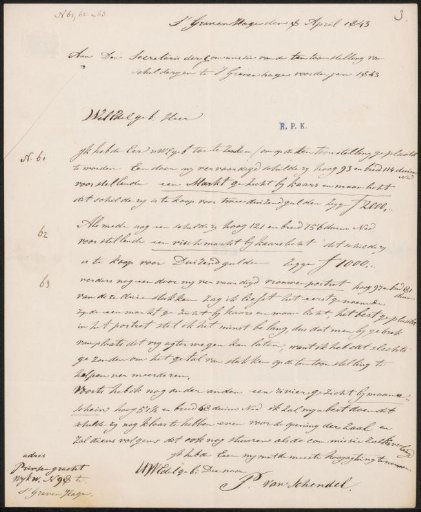 N 61, 62 63
3
s' Gravenhage den 8 April 1843
Aan Den Secretaris der Commissie van de ten toonstelling van
schilderyen te s' Gravenhage voor den jare 1843
WelEdelgeb. Heer
R.P.K.
N. 61
Ik heb de Eer UWEgeb. toe te zenden, om op de ten toonstelling geplaatst
te worden. Een door my vervaardigd schildery hoog 93 en breed 114 duimen Ned
voorstellende een Markt gezicht by kaars en maan licht
dat schildery is te koop voor twee duizend gulden zegge f 2000,-
62
Als mede nog een schildery hoog 121 en breed 156 duim Ned
voorstellende een vischmarkt by kaarslicht dit schildery
is te koop voor Duizend gulden zegge f 1000,-
63
verders nog een door my vervaardigd vrouwe-portret hoog
van deze drie stukken zag ik liefst het eerst genoemde
zynde een markt gezicht by kaars en maan licht, het best geplaatst
in het portret stel ik het minst belang, dus dat men by gebrek
van plaats det wegkan laten, want ik heb det slechts
gezonden om het getal van stukken op de ten toonstelling te
helpen vermeerderen.
Voorts heb ik nog onder anden een rivier gezicht by maane
schein hoog 51½ en breed 63 duims Ned ik zal myn best doen dit
stukje by nog klaar te hebben even voor de opening der zaal en
zal dien volgens dit ook nog sturen als de commissie zulks
Ik heb de Eer my met de meeste hoogachting te noemen
UWEdelgeb. Dienaar
P. van Schendel.
adres
Prinsengracht
wyk W. N 98 te
s' Graven Hage.